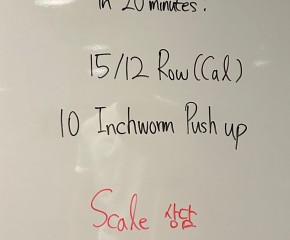 in 20 minutes.
15/12 Row (Cal)
10 Inchworm Push up
Scale 상담